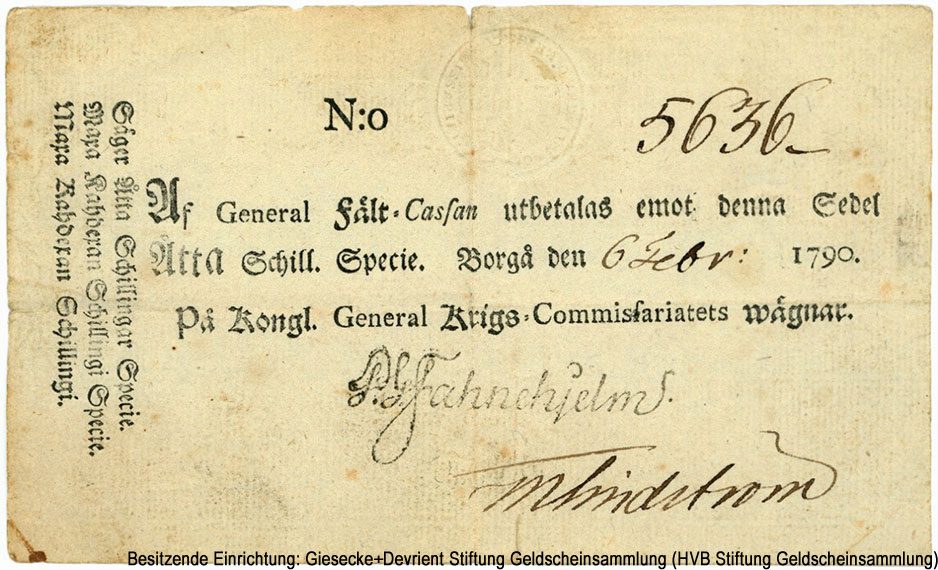 N:o 5636
Af General Fält-Cassan utbetalas emot denna Sedel
Åtta Schill. Specie. Borgå den 6 Febr: 1790.
På Kongl. General Krigs-Commissariatets wägnar.
Fahnehjelm.
M Lindström
Säger Åtta Schillingar Specie.
Maxa Kahdexan Schillingi Specie.
Maxa Kahdexan Schillingi.
Besitzende Einrichtung: Giesecke+Devrient Stiftung Geldscheinsammlung (HVB Stiftung Geldscheinsammlung)